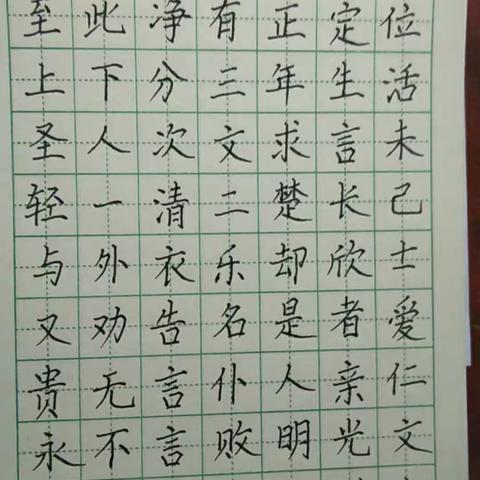 至此净有正定位
上下分三年生活
圣人次文求言未
轻一清二楚长己
与外衣乐却欣士
又劝告名是者爱
贵无言仆人亲仁
永不言败明光文